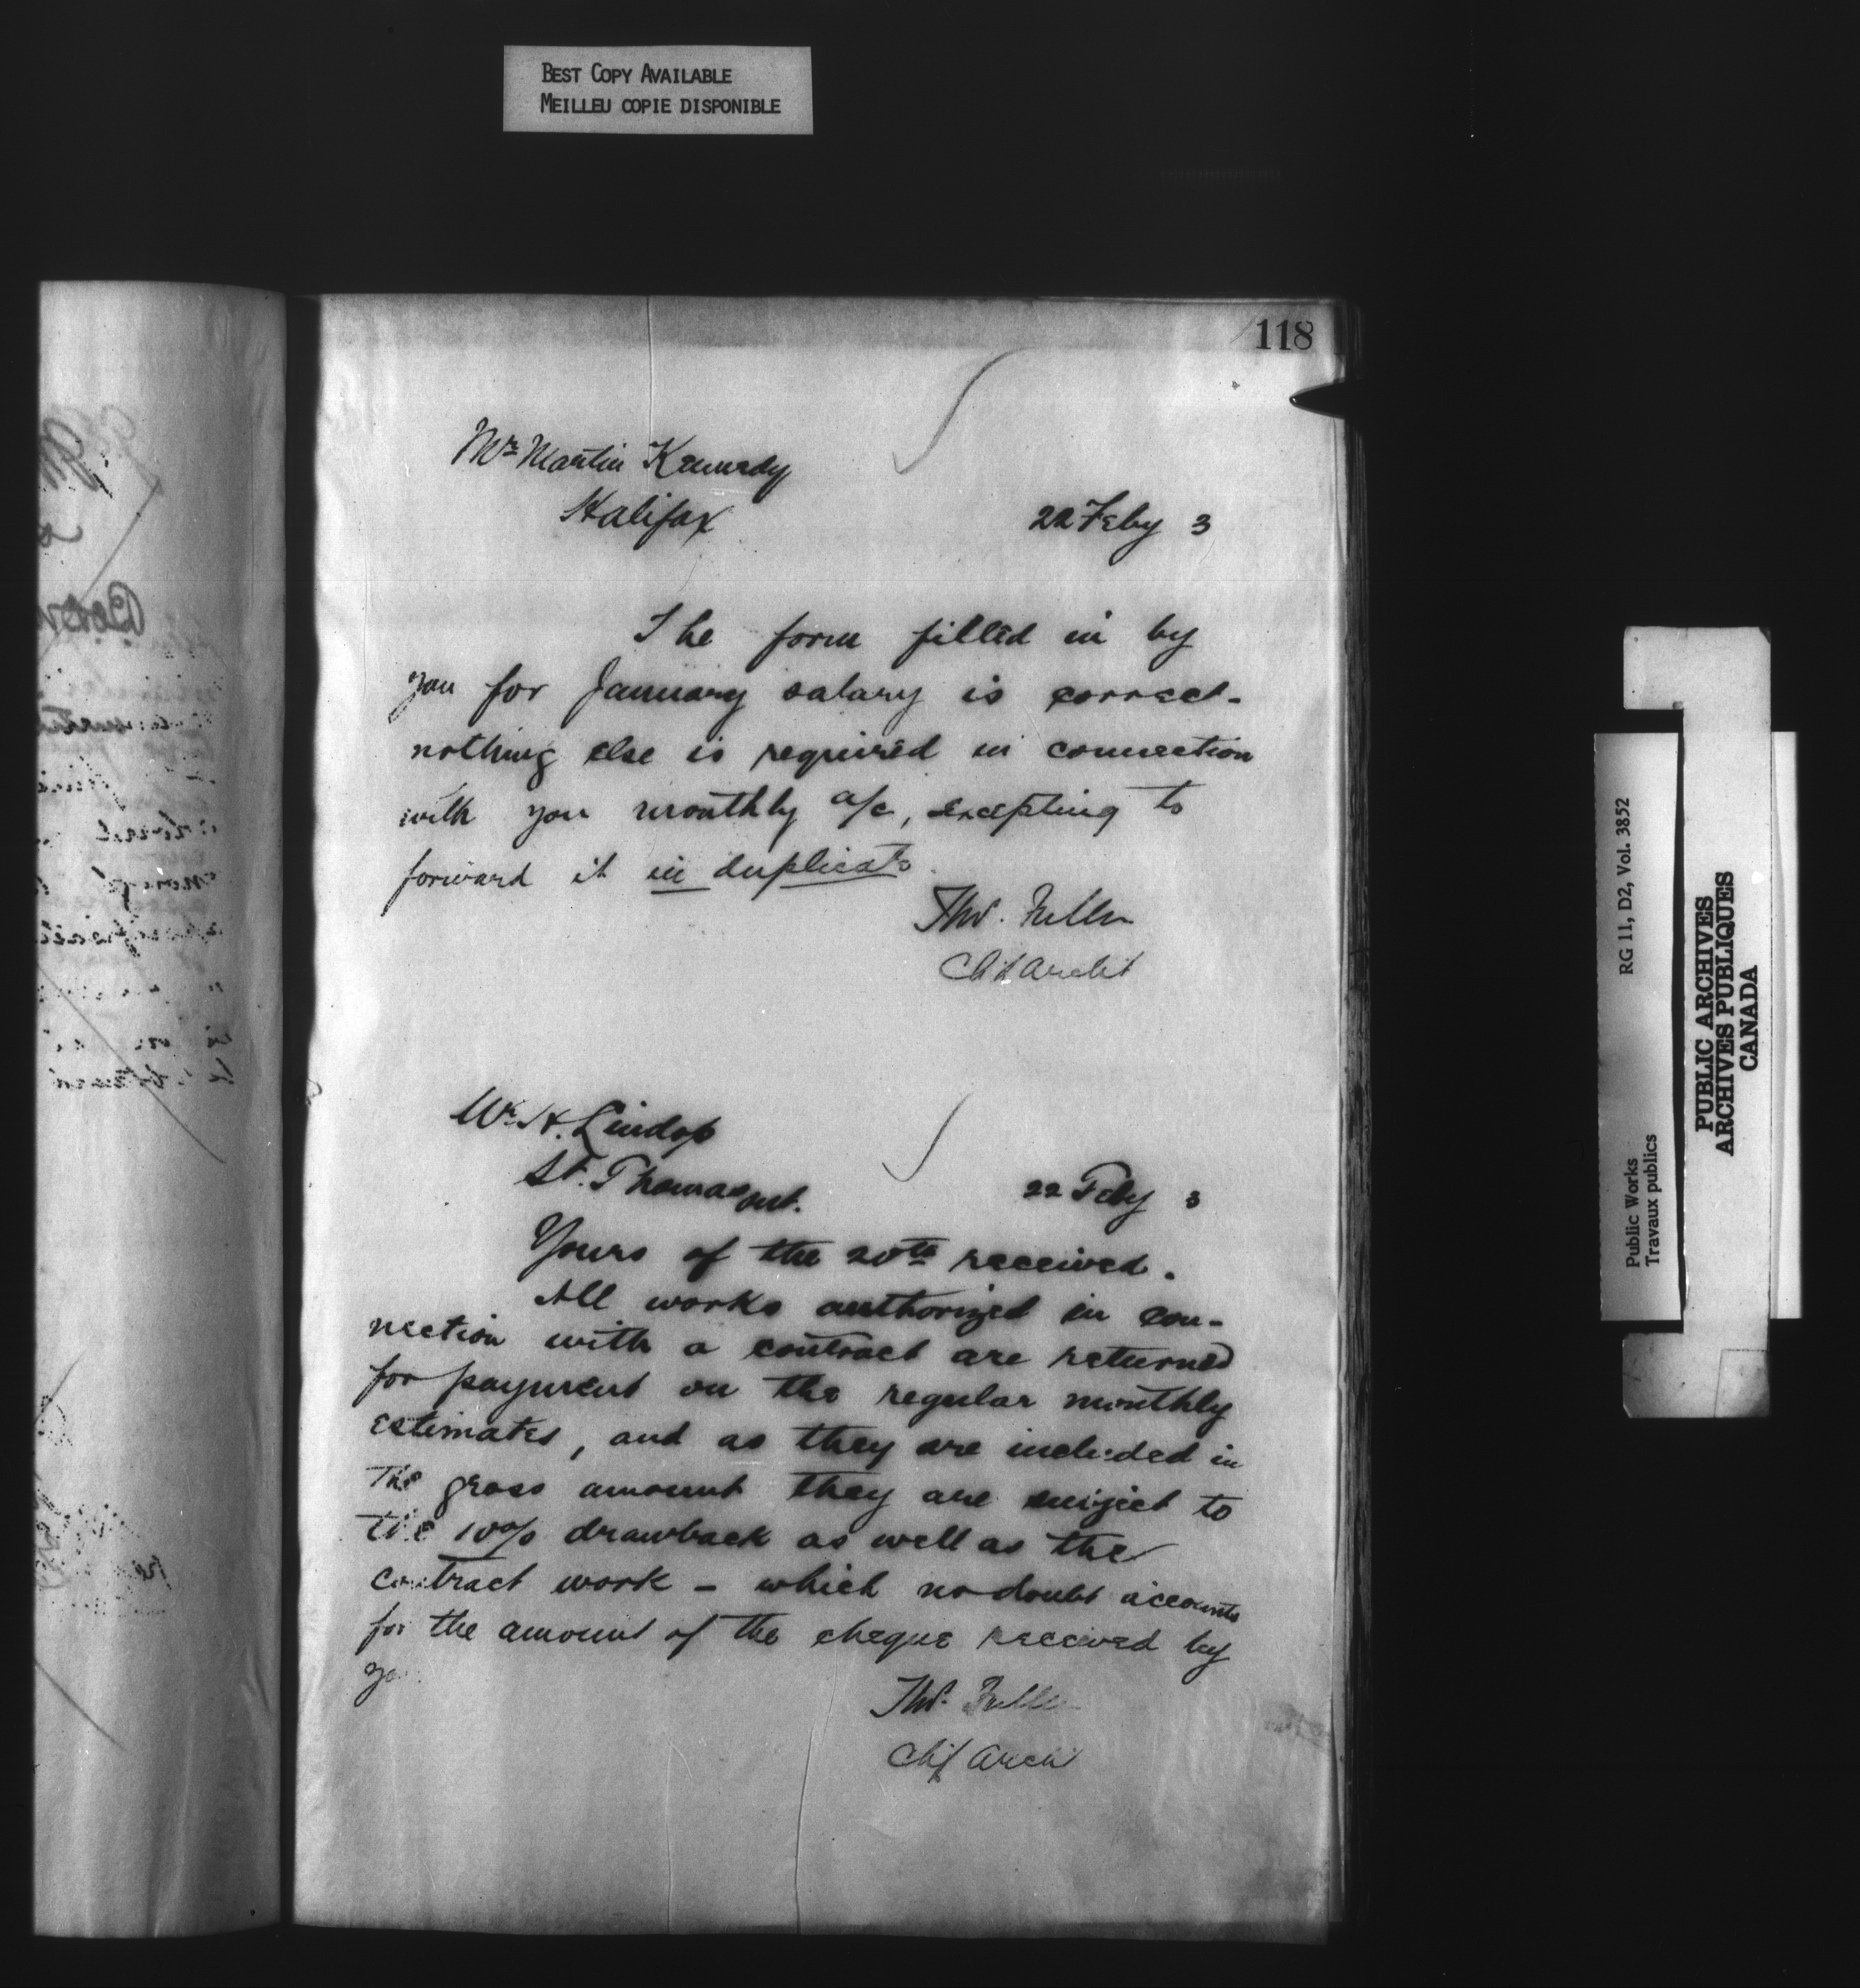 BEST COPY AVAILABLE
MEILLEU COPIE DISPONIBLE
118
Mr Martin Kennedy
Halifax
22 Feby 3
The form filled in by
you for January salary is correct-
nothing else is required in connection
with you monthly a/c, excepting to
forward it in duplicate
Thos. Fuller
Chf Archt
Mr H. Lindop
St. Thomas Ont.
22 Feby 3
Yours of the 20th received.
All works authorized in con-
nection with a contract are returned
for payment on the regular monthly
estimates, and as they are included in
the gross amount they are subject to
the 10% drawback as well as the
contract work - which no doubt accounts
for the amount of the cheque received by
you
Thos. Fuller
Chf Archt
Public Works
Travaux publics
RG 11, D2, Vol. 3852
PUBLIC ARCHIVES
ARCHIVES PUBLIQUES
CANADA